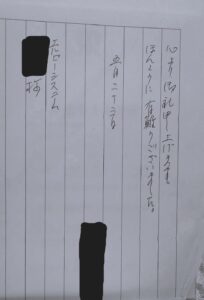 心より御礼申し上げます
ほんとうに有難うございました。
五月二十二日
エローシステム
様